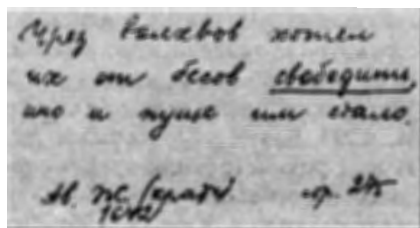 Через волхвов хотел
их от бесов свободити,
ино и пуще им стало.
Ав. Ж
стр.